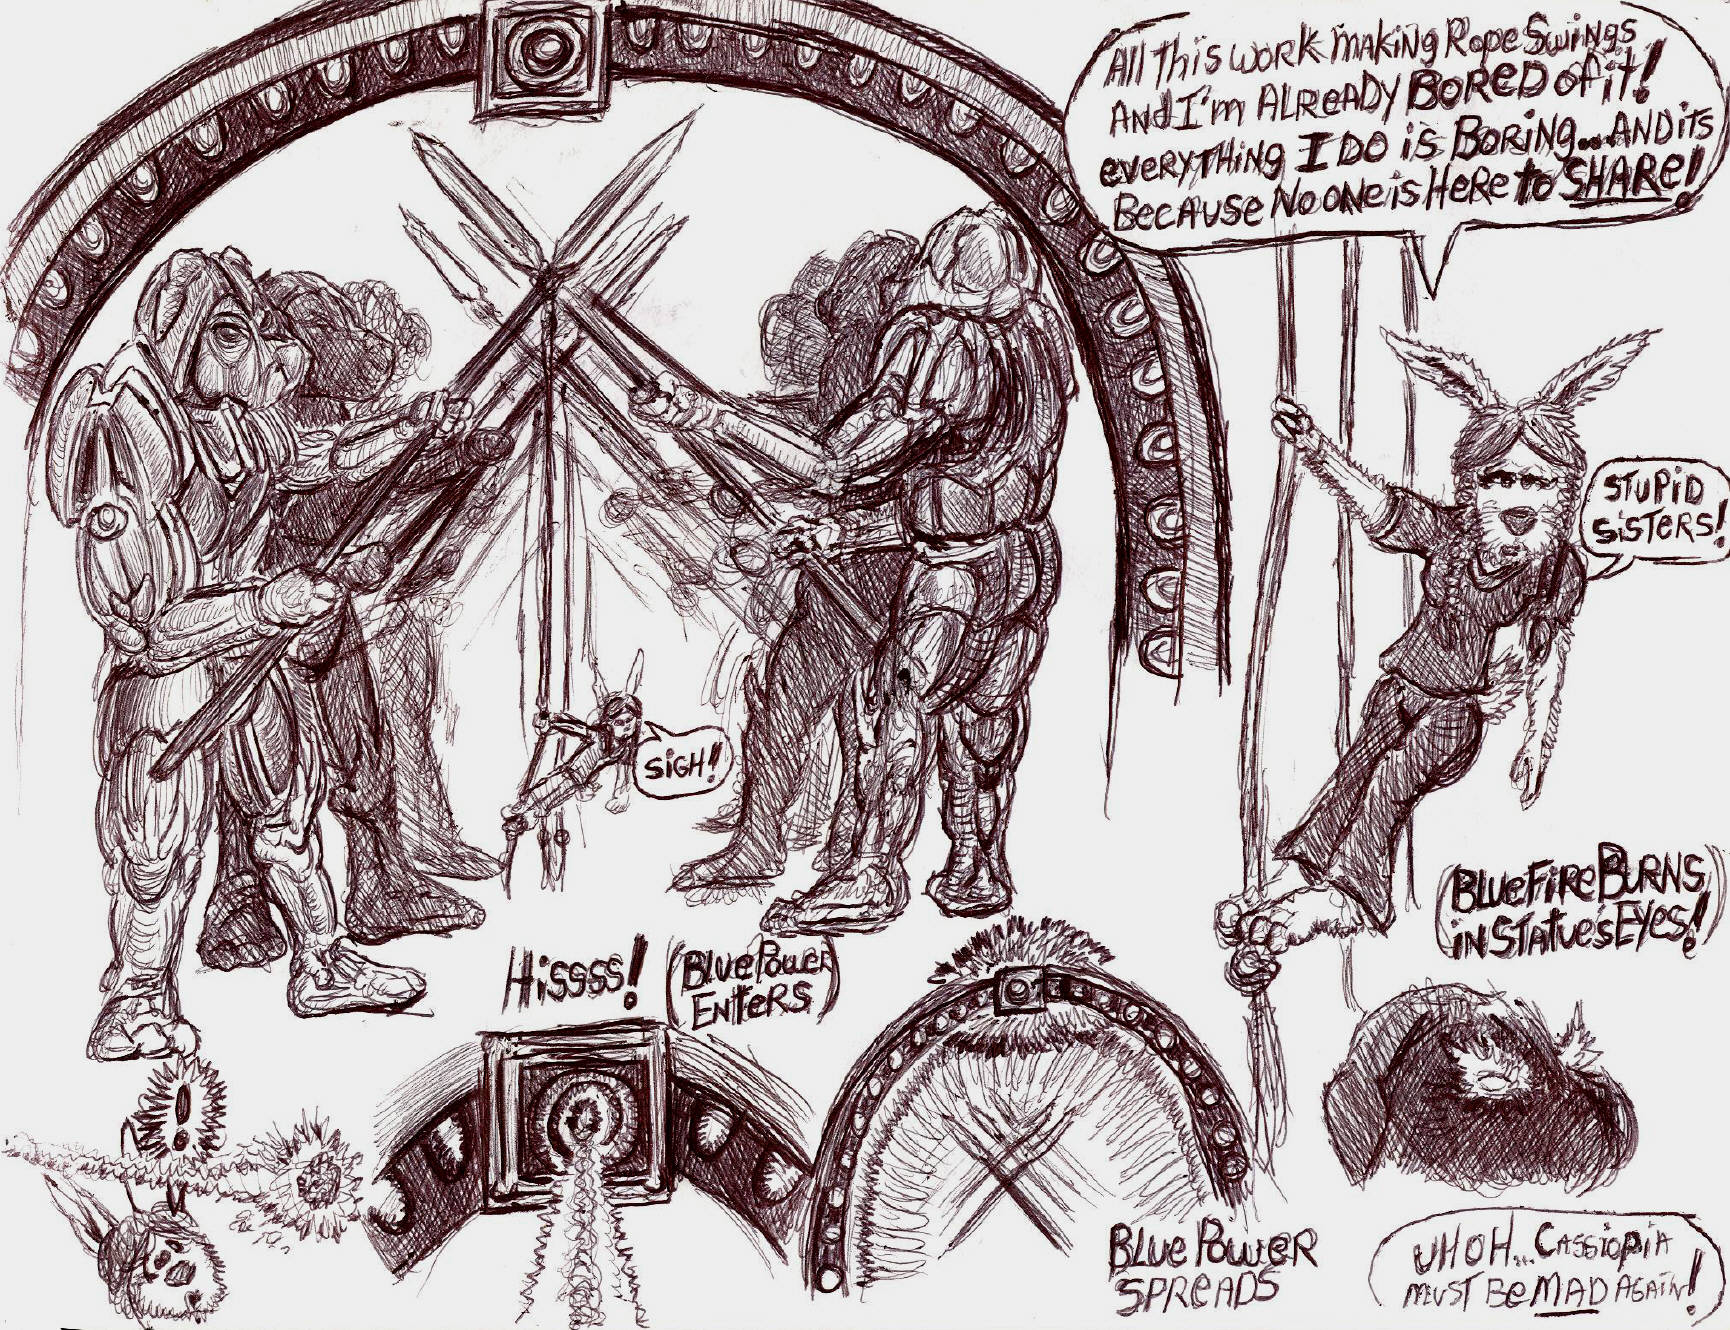 All This work making Rope Swings
And I'm ALReADY BORED of it!
everYTHiNg I DO is BoRiNg...AND iTS
BecAuse No oNe is HeRe to SHARe!
STuPiD
SiSTeRS!
SiGH!
(BLue FiRe BuRNS
iN STATue'S EYeS!)
HiSSSS!
(BLue PoweR
ENTeRS)
!
BLue PoweR
SPReADS
uH OH... CASSioPiA
MuST Be MAD AGAiN!